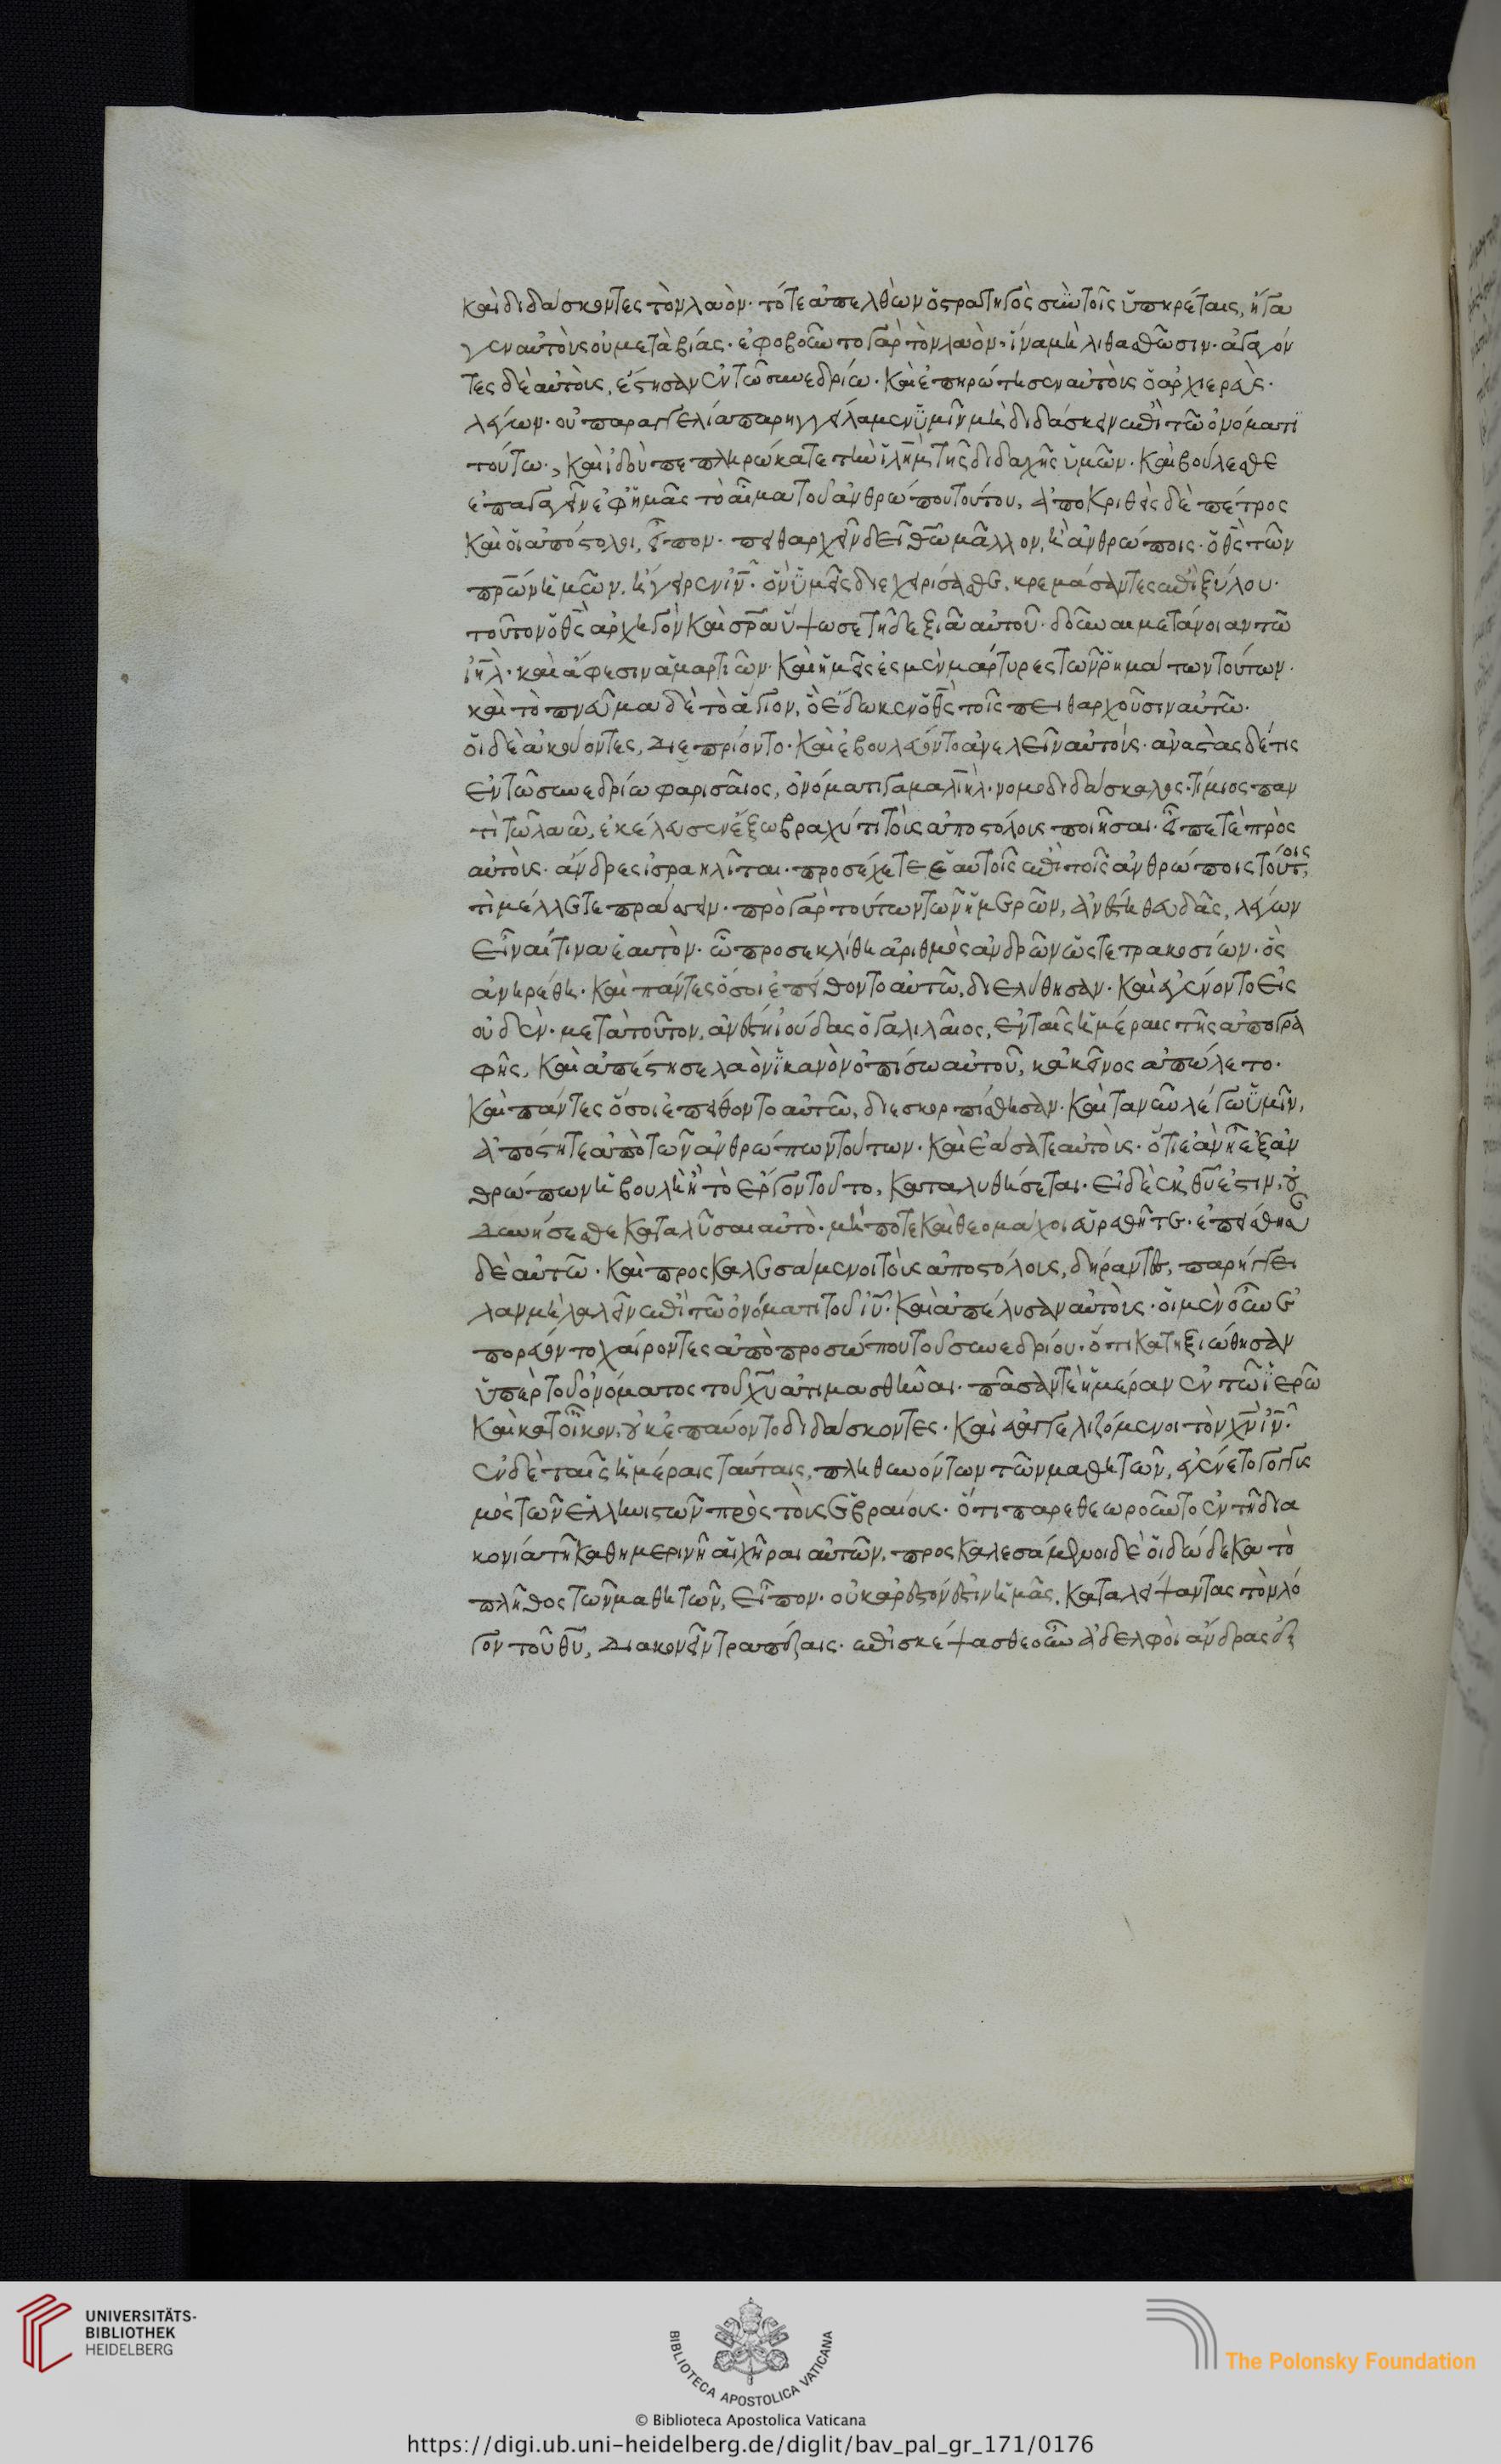 καὶ διδάσκοντες τὸν λαὸν· τότε ἀπελθὼν ὁ στρατηγὸς σὺν τοῖς ὑπηρέταις, ἤγα
γεν αὐτοὺς οὐ μετὰ βίας· ἐφοβοῦντο γὰρ τὸν λαὸν· ἵνα μὴ λιθασθῶσιν· ἀγαγόν
τες δὲ αὐτοὺς, ἔστησαν ἐν τῶ συνεδρίω· καὶ ἐπηρώτησεν αὐτοὺς ὁ ἀρχιερεὺς·
λέγων· οὐ παραγγελία παρηγγείλαμεν ὑμῖν μὴ διδάσκειν ἐπὶ τῶ ὀνόματι
τούτω·, καὶ ἰδοὺ πεπληρώκατε τὴν ἰλημ τῆς διδαχῆς ὑμῶν· καὶ βούλεσθε
ἐπαγαγεῖν ἐφ ἡμᾶς τὸ αἷμα τοῦ ἀνθρώπου τούτου, ἀποκριθεὶς δὲ πέτρος
καὶ οἱ ἀπόστολοι, εἶπον· πειθαρχεῖν δεῖ θῶ μᾶλλον, ἢ ἀνθρώποις· ὁ θς τῶν
πρων ἡμῶν, ἤγειρεν ιν· ὃν ὑμεῖς διεχειρίσασθε, κρεμάσαντες ἐπὶ ξύλου·
τοῦτον ὁ θς ἀρχηγὸν καὶ σρα ὕψωσε τῆ δεξιᾶ αὐτοῦ· δοῦναι μετάνοιαν τῶ
ιηλ· καὶ ἄφεσιν ἁμαρτιῶν· καὶ ἡμεῖς ἐσμὲν μάρτυρες τῶν ῥημάτων τούτων·
καὶ τὸ πνεῦμα δὲ τὸ ἅγιον, ὃ ἔδωκεν ὁ θς τοῖς πειθαρχοῦσιν αὐτῶ·
οἱ δὲ ἀκούοντες, διεπρίοντο· καὶ ἐβουλεύοντο ἀνελεῖν αὐτούς· ἀναστὰς δέ τις
ἐν τῶ συνεδρίω φαρισαῖος, ὀνόματι γαμαλιὴλ· νομοδιδάσκαλος· τίμιος παν
τὶ τῶ λαῶ, ἐκέλευσεν ἔξω βραχύ τι τοὺς ἀποστόλους ποιῆσαι· εἶπέ τε πρὸς
αὐτοὺς· ἄνδρες ἰσραηλῖται· προσέχετε ἑαυτοῖς ἐπὶ τοῖς ἀνθρώποις τούτοις,
τί μέλλετε πράσσειν· πρὸ γὰρ τούτων τῶν ἡμερῶν, ἀνέστη θευδᾶς, λέγων
εἶναί τινα ἑαυτὸν· ὧ προσεκλίθη ἀριθμὸς ἀνδρῶν ὡς τετρακοσίων· ὃς
ἀνηρέθη· καὶ πάντες ὅσοι ἐπείθοντο αὐτῶ, διελύθησαν· καὶ ἐγένοντο εἰς
οὐδὲν· μετὰ τοῦτον, ἀνέστη ἰούδας ὁ γαλιλαῖος, ἐν ταῖς ἡμέραις τῆς ἀπογρα
φῆς, καὶ ἀπέστησε λαὸν ἱκανὸν ὀπίσω αὐτοῦ, κἀκεῖνος ἀπώλετο·
καὶ πάντες ὅσοι ἐπείθοντο αὐτῶ, διεσκορπίσθησαν· καὶ τανῦν λέγω ὑμῖν,
ἀπόστητε ἀπὸ τῶν ἀνθρώπων τούτων· καὶ ἐάσατε αὐτοὺς· ὅτι ἐὰν ἦ ἐξ ἀν
θρώπων ἡ βουλὴ ἢ τὸ ἔργον τοῦτο, καταλυθήσεται· εἰ δὲ ἐκ θυ ἐστιν, οὐ
δυνήσεσθε καταλῦσαι αὐτὸ· μήποτε καὶ θεομάχοι εὑρεθῆτε· ἐπείσθησαν
δὲ αὐτῶ· καὶ προσκαλεσάμενοι τοὺς ἀποστόλους, δείραντες, παρήγγει
λαν μὴ λαλεῖν ἐπὶ τῶ ὀνόματι τοῦ ιυ· καὶ ἀπέλυσαν αὐτοὺς· οἱ μὲν οὖν ἐ
πορεύοντο χαίροντες ἀπὸ προσώπου τοῦ συνεδρίου· ὅτι κατηξιώθησαν
ὑπὲρ τοῦ ὀνόματος τοῦ χυ ἀτιμασθῆναι· πᾶσάν τε ἡμέραν ἐν τῶ ἱερῶ
καὶ κατοῖκον, οὐκ ἐπαύοντο διδάσκοντες· καὶ εὐαγγελιζόμενοι τὸν χν ιν·
ἐν δὲ ταῖς ἡμέραις ταύταις, πληθυνόντων τῶν μαθητῶν, ἐγένετο γογγυς
μὸς τῶν ἑλληνιστῶν πρὸς τοὺς ἑβραίους· ὅτι παρεθεωροῦντο ἐν τῆ δια
κονία τῆ καθημερινῆ αἱ χῆραι αὐτῶν, προσκαλεσάμενοι δὲ οἱ δώδεκα τὸ
πλῆθος τῶν μαθητῶν, εἶπον· οὐκ ἀρεστόν ἐστιν ἡμᾶς, καταλείψαντας τὸν λό
γον τοῦ θυ, διακονεῖν τραπέζαις· ἐπισκέψασθε οὖν ἀδελφοὶ ἄνδρας ἐξ
UNIVERSITÄTS-
BIBLIOTHEK
HEIDELBERG
BIBLIOTECA APOSTOLICA VATICANA
The Polonsky Foundation
© Biblioteca Apostolica Vaticana
https://digi.ub.uni-heidelberg.de/diglit/bav_pal_gr_171/0176